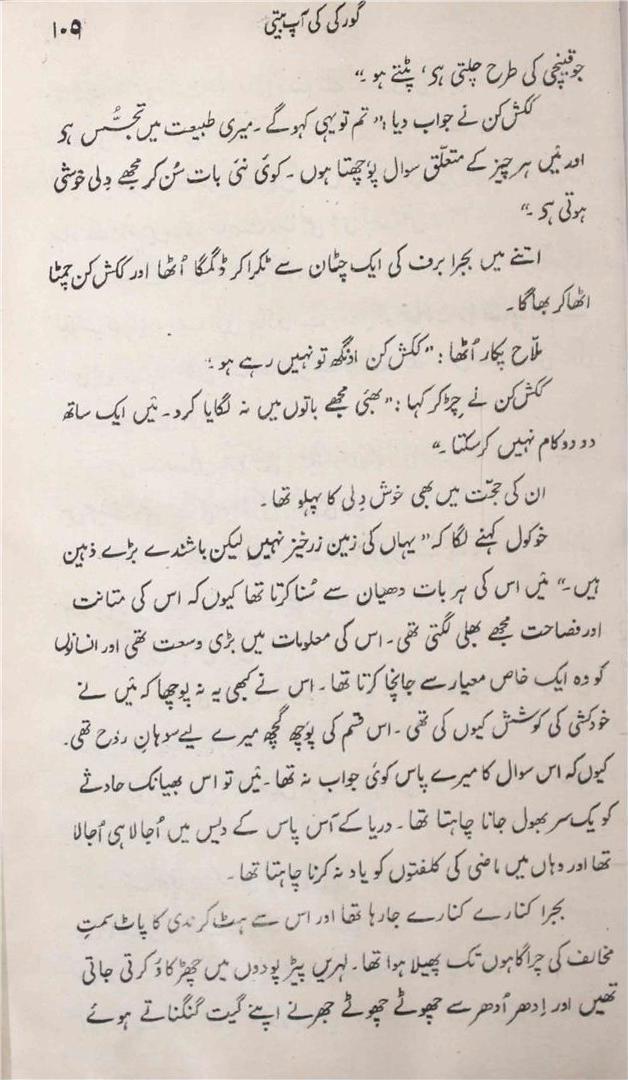 گورکی کی آپ بیتی
۱۰۵
جو قینچی کی طرح چلتی ہی، پٹتے ہو۔“
ککش کن نے جواب دیا: ”تم تو یہی کہو گے۔ میری طبیعت میں تجسُّس ہی
اور مَیں ہر چیز کے متعلّق سوال پوٗچھتا ہوں۔ کوئی نئی بات سُن کر مجھے دِلی خوشی
ہوتی ہی۔“
اتنے میں بجرا برف کی ایک چٹان سے ٹکرا کر ڈگمگا اُٹھا اور ککش کن چمٹا
اٹھا کر بھاگا۔
ملّاح پکار اُٹھا: ”ککش کن اونگھ تو نہیں رہے ہو۔“
ککش کن نے چِڑ کر کہا: ”بھئی مجھے باتوں میں نہ لگایا کرو۔ مَیں ایک ساتھ
دو دو کام نہیں کر سکتا۔“
ان کی حجّت میں بھی خوش دِلی کا پہلو تھا۔
خوکول کہنے لگا کہ ”یہاں کی زمین زرخیز نہیں لیکن باشندے بڑے ذہین
ہیں۔“ مَیں اس کی ہر بات دھیان سے سُنا کرتا تھا کیوں کہ اس کی متانت
اور فصاحت مجھے بھلی لگتی تھی۔ اس کی معلومات میں بڑی وسعت تھی اور انسانوں
کو وہ ایک خاص معیار سے جانچا کرتا تھا۔ اس نے کبھی یہ نہ پوچھا کہ مَیں نے
خودکشی کی کوشش کیوں کی تھی۔ اس قسم کی پوٗچھ گچھ میرے لیے سوہانِ روٗح تھی۔
کیوں کہ اس سوال کا میرے پاس کوئی جواب نہ تھا۔ مَیں تو اس بھیانک حادثے
کو یک سر بھول جانا چاہتا تھا۔ دریا کے آس پاس کے دیس میں اُجالا ہی اُجالا
تھا اور وہاں میں ماضی کی کلفتوں کو یاد نہ کرنا چاہتا تھا۔
بجرا کنارے کنارے جا رہا تھا اور اس سے ہٹ کر ندی کا پاٹ سمتِ
مخالف کی چراگاہوں تک پھیلا ہوا تھا۔ لہریں پیڑ پودوں میں چھڑکاؤ کرتی جاتی
تھیں اور اِدھر اُدھر سے چھوٹے چھوٹے جھرنے اپنے گیت گنگناتے ہوئے